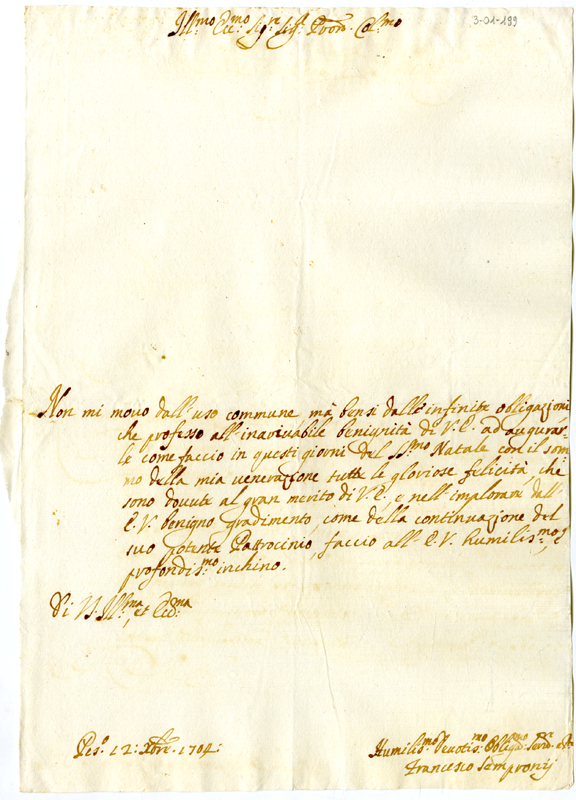 3-01-199
Ill:mo Ecc:mo Sig:re Sig:r Pron: Col:mo
Non mi movo dall'uso commune mà bensi dalle infinite obligazioni
che professo all'inarivabile benignità di V.E. ad augurar-
le come faccio in questi giorni del SS:mo Natale con il som-
mo della mia venerazione tutte le gloriose felicità, che
sono dovute al gran merito di V.E, e nell'implorare dall'
E.V. benigno gradimento, come della continuazione del
suo potente Patrocinio, faccio all'E.V. humilis:mo, e
profondis:mo inchino.
Di V. Ill:ma, et Ecc:ma
Pes:o 12: Xbre. 1704:
Humilis:mo Devotis:mo Obligd:mo Serd:re
Francesco Sempronij